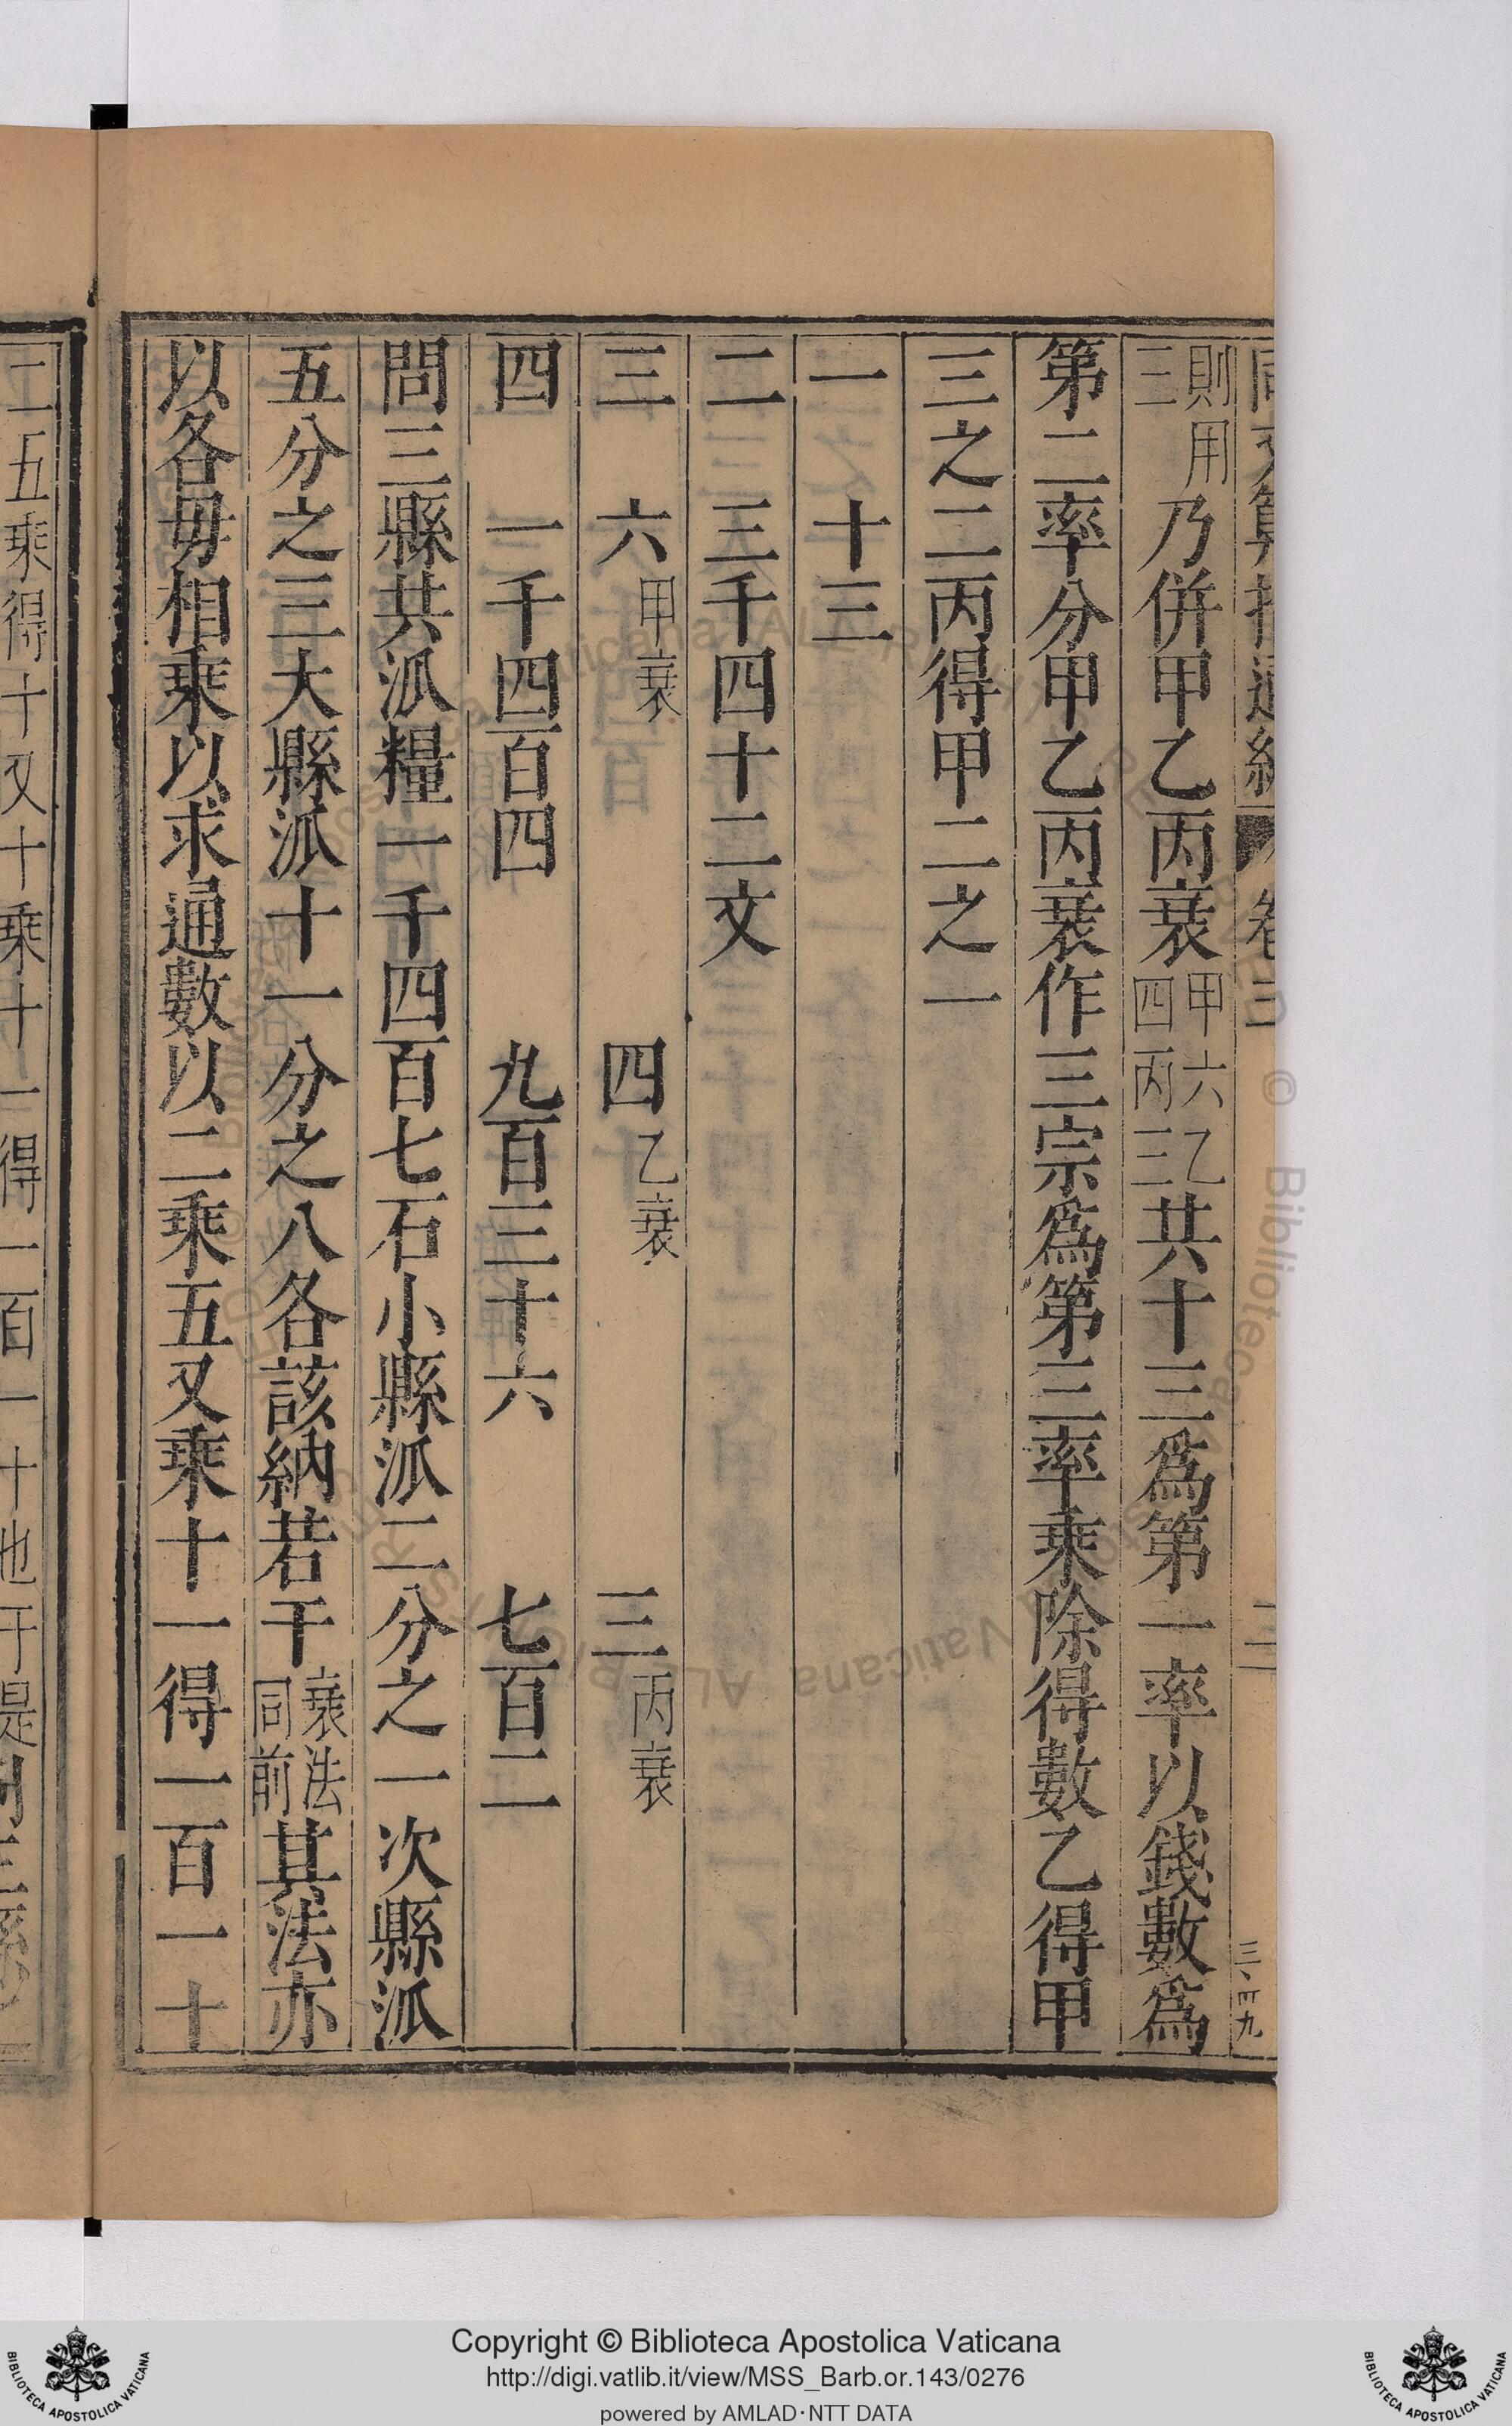 則用
三
乃併甲乙丙衰
甲六乙
四丙三
共十三爲第一率以錢數爲
第二率分甲乙丙衰作三宗爲第三率乘除得數乙得甲
三之二丙得甲二之一
一 十三
二 三千四十二文
三 六甲衰 四乙衰 三丙衰
四 一千四百四 九百三十六 七百二
問三縣共派糧一千四百七石小縣派二分之一次縣派
五分之三大縣派十一分之八各該納若干
衰法
同前
其法亦
以各毋相乘以求通數以二乘五又乘十一得一百一十
二五乘得十又十乘十一得一百一十也于是
Copyright © Biblioteca Apostolica Vaticana
http://digi.vatlib.it/view/MSS_Barb.or.143/0276
powered by AMLAD·NTT DATA
BIBLIOTECA APOSTOLICA VATICANA
BIBLIOTECA APOSTOLICA VATICANA